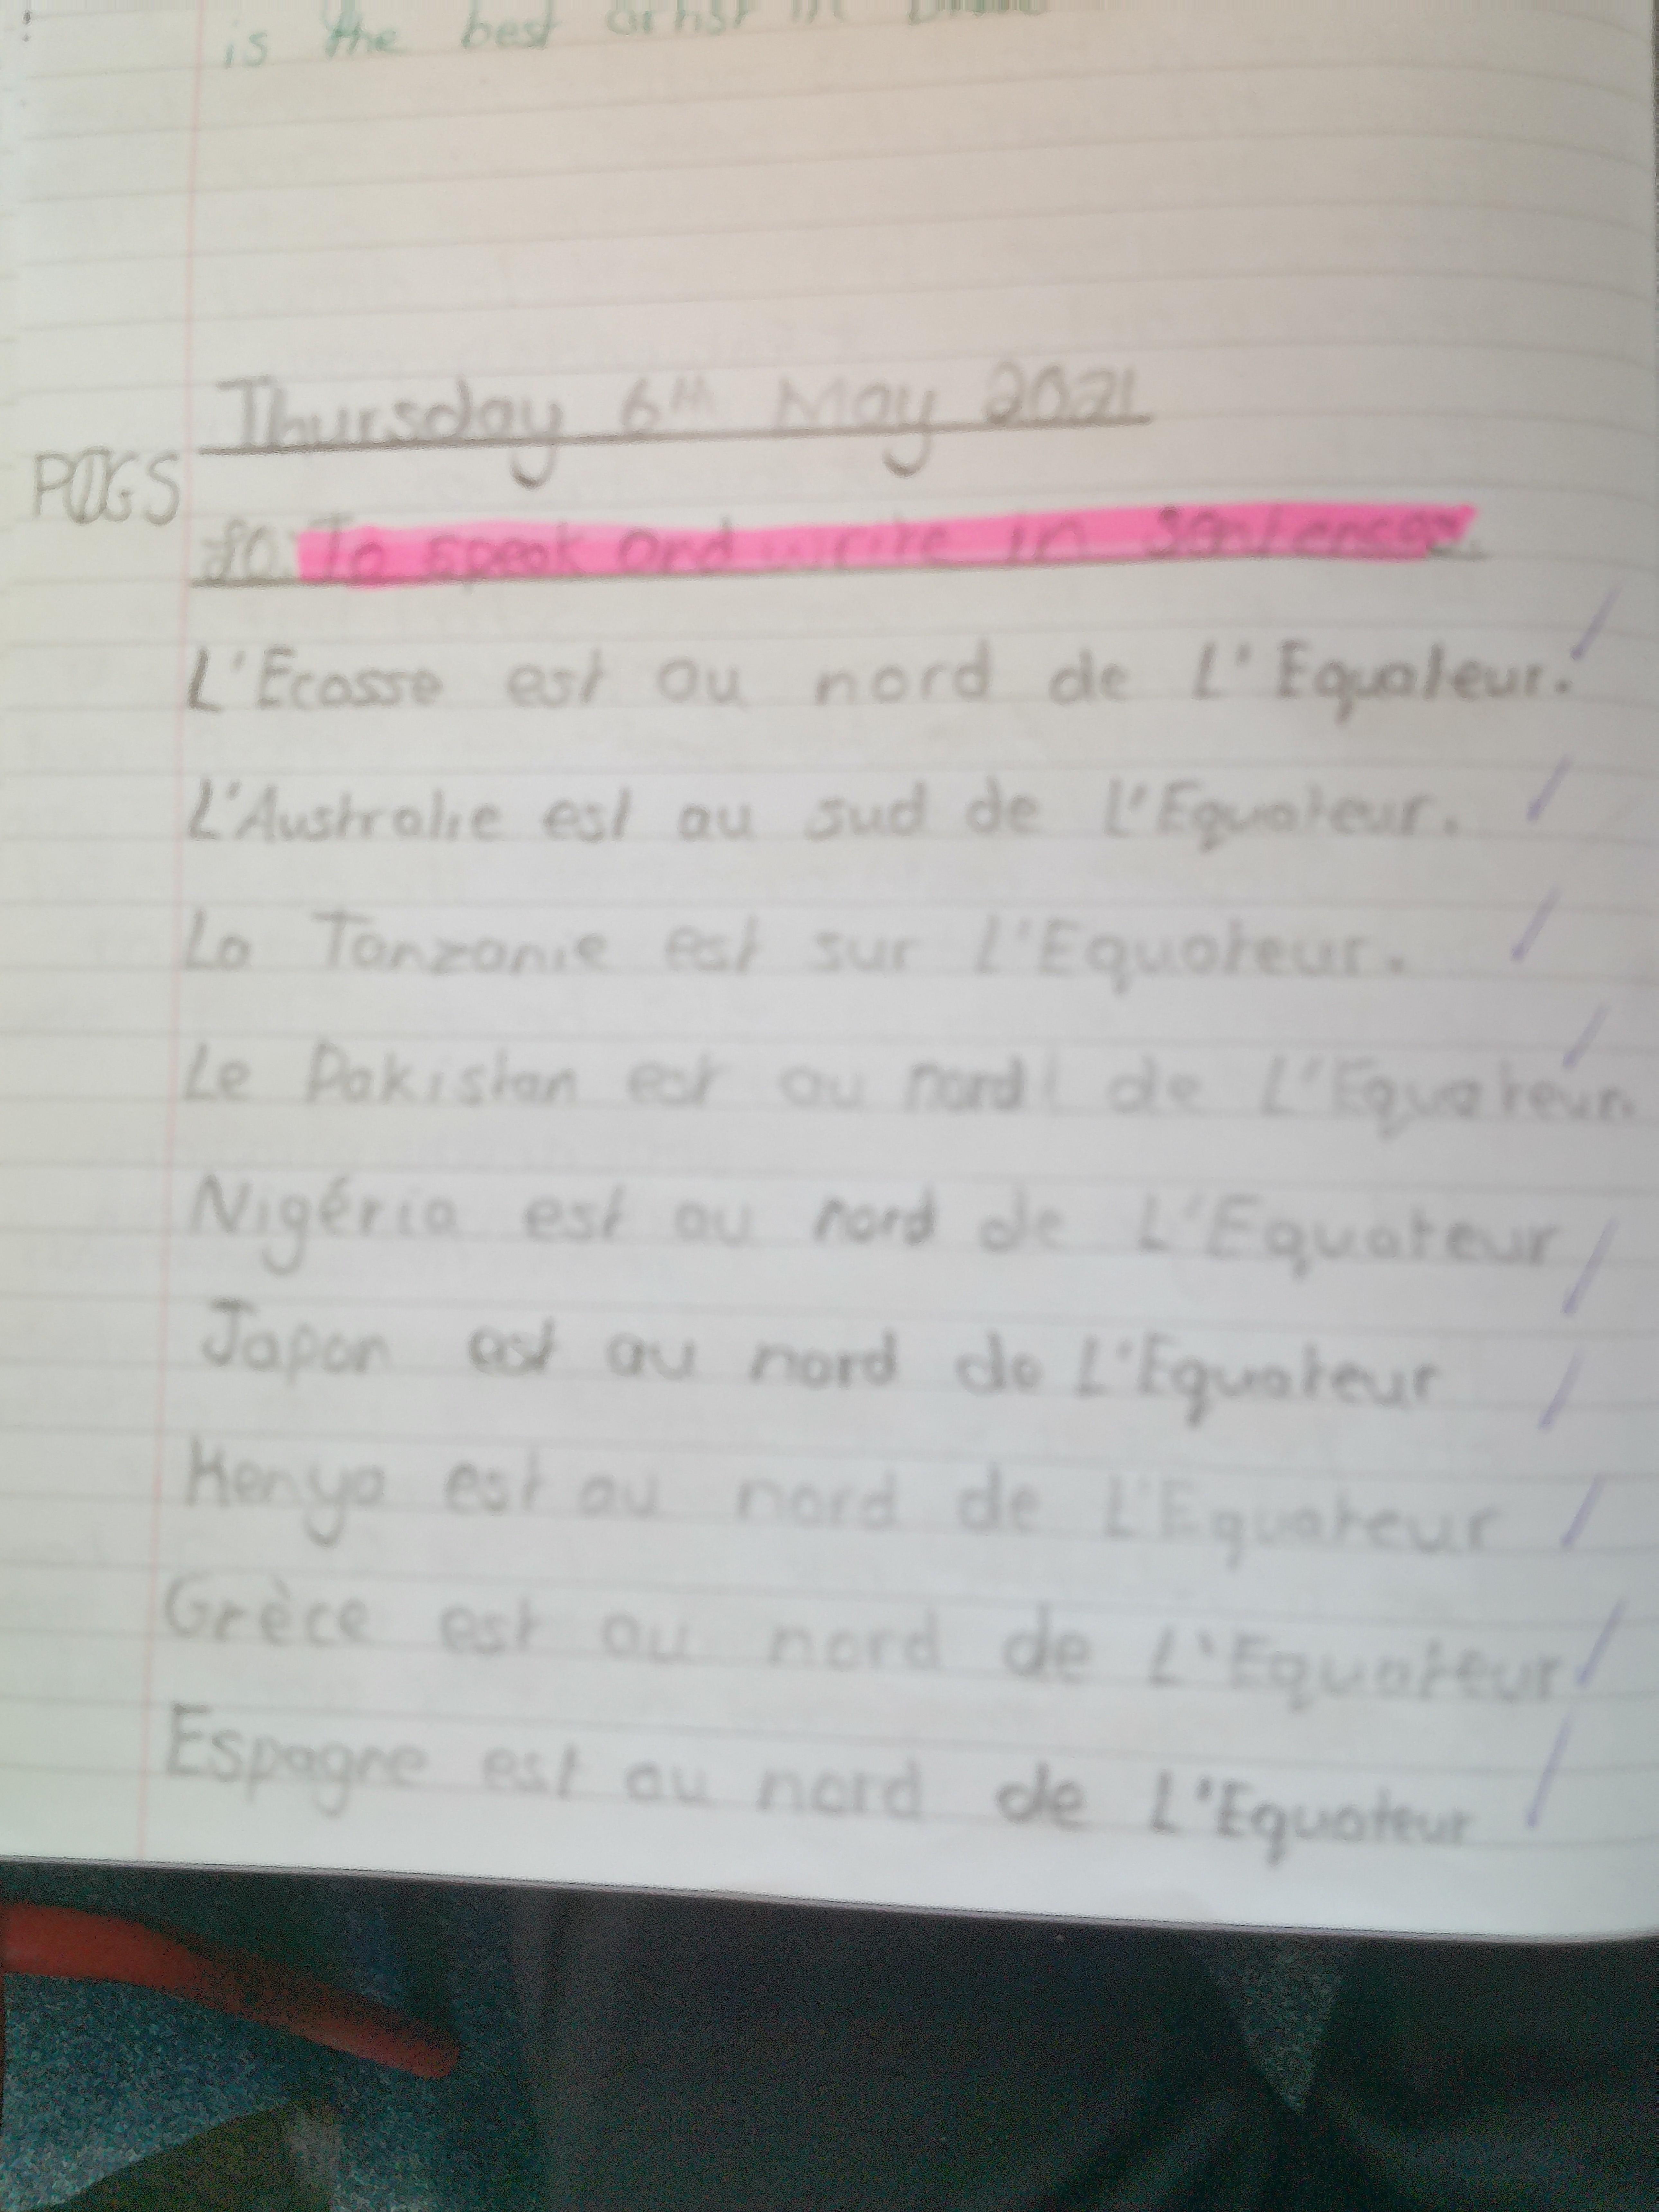 is the best artist in
Thursday 6th May 2021
POGS
LO: To speak and write in sentences.
L'Ecosse est au nord de L'Equateur.
L'Australie est au sud de L'Equateur.
La Tanzanie est sur L'Equateur.
Le Pakistan est au nord de L'Equateur.
Nigéria est au nord de L'Equateur
Japon est au nord de L'Equateur
Kenya est au nord de L'Equateur
Grèce est au nord de L'Equateur
Espagne est au nord de L'Equateur